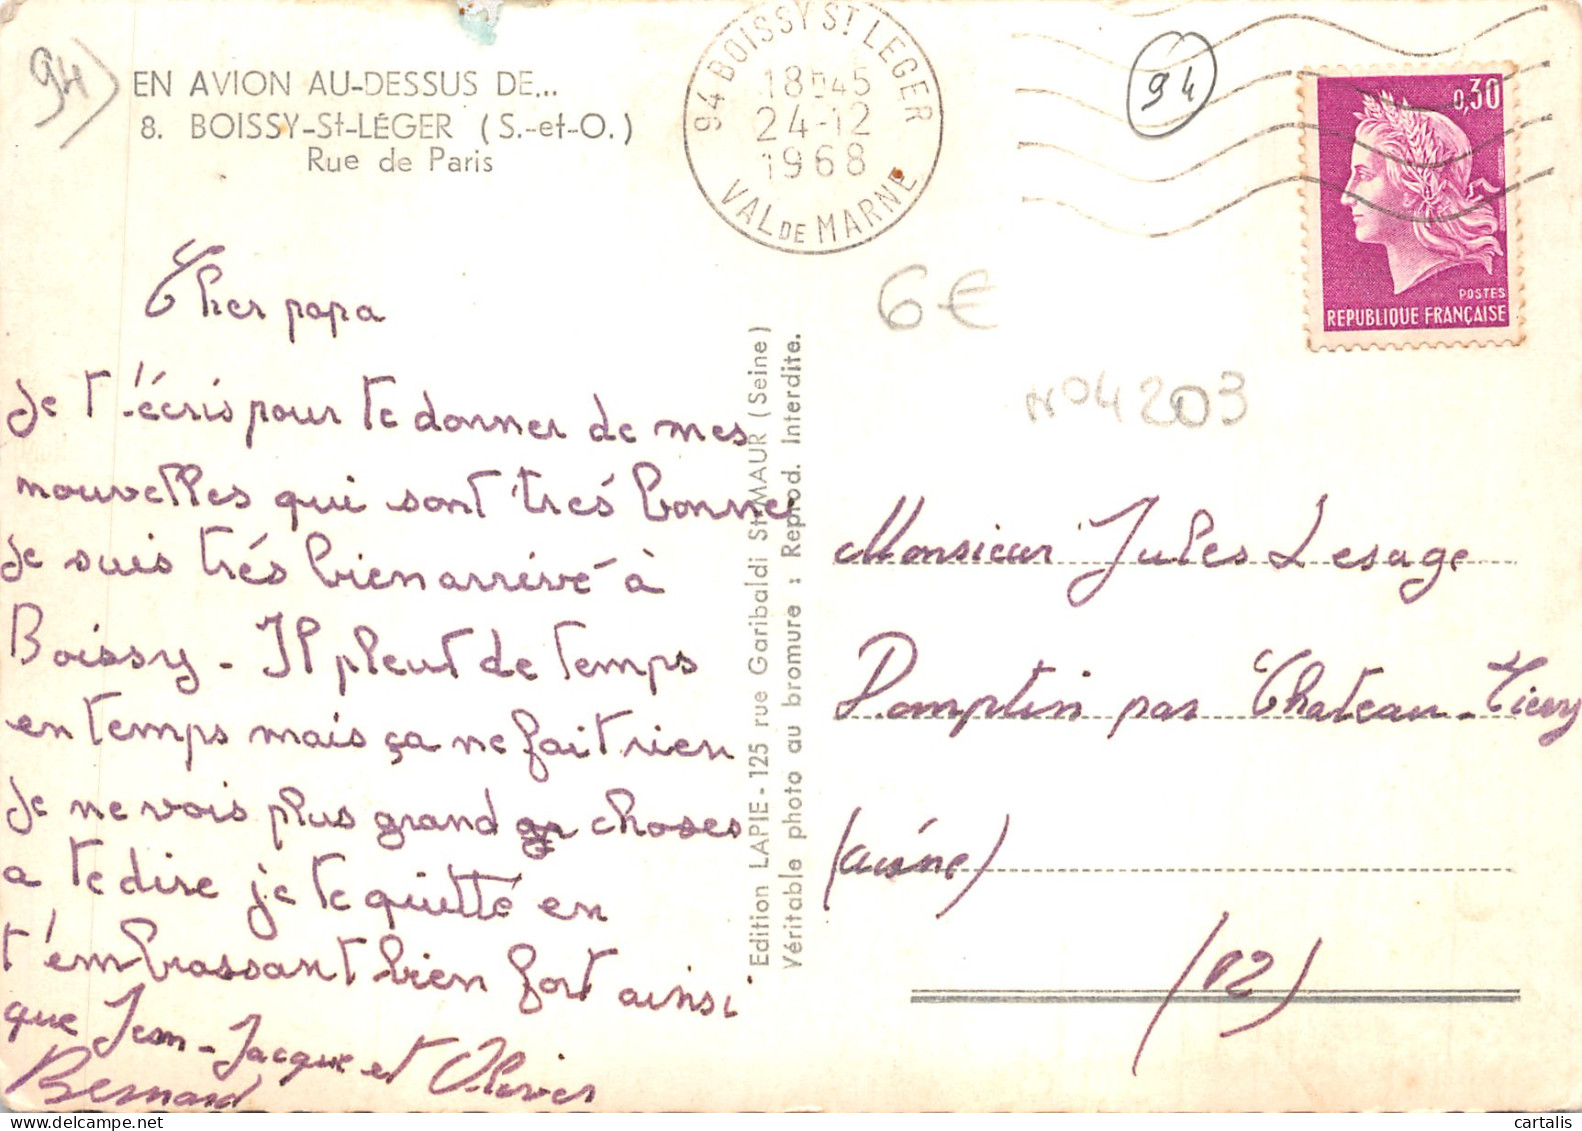 94
EN AVION AU-DESSUS DE...
8. BOISSY-St-LÉGER (S.-et-O.)
Rue de Paris
94 BOISSY ST LEGER
18H45
24-12
1968
VAL DE MARNE
94
0,30
POSTES
REPUBLIQUE FRANÇAISE
6€
N°4203
Cher papa
Je t'écris pour te donner de mes
nouvelles qui sont très bonne
Je suis très bien arrévé à
Boissy - Il pleut de temps
en temps mais ça ne fait rien
Je ne vois plus grand choses
a te dire je te quitté en
t'embrassant bien fort ainsi
que Jean-Jacque et Olivier
Bernard
Edition LAPIE - 125 rue Garibaldi St-MAUR (Seine)
Véritable photo au bromure : Reprod. Interdite.
Monsieur Jules Lesage
Domptin par Chateau-Tierry
(aisne)
(02)
cartalis